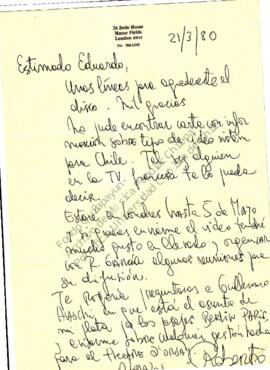 26 Bede House
Manor Fields
London SW15
Tel. 788
21/3/80
Estimado Eduardo,
Unas líneas para agradecerte el
disco. Mil gracias
No pude encontrar carta con infor
mación sobre tipo de video sistem
para Chile. Tal vez alguien
en la TV. francesa te lo pueda
decir.
Estaré en Londres hasta 5 de Mayo
y si puedes enviarme el video tendré
mucho gusto en llevarlo y organizar
con R. García algunas reuniones para
su difusión.
Te rogaría preguntaras a Guillermo
en que está el asunto de
mi plata por los pasajes Berlin París
e informe sobre gestión hecha
para el Theatre D'Orsay
Abrazos
Roberto